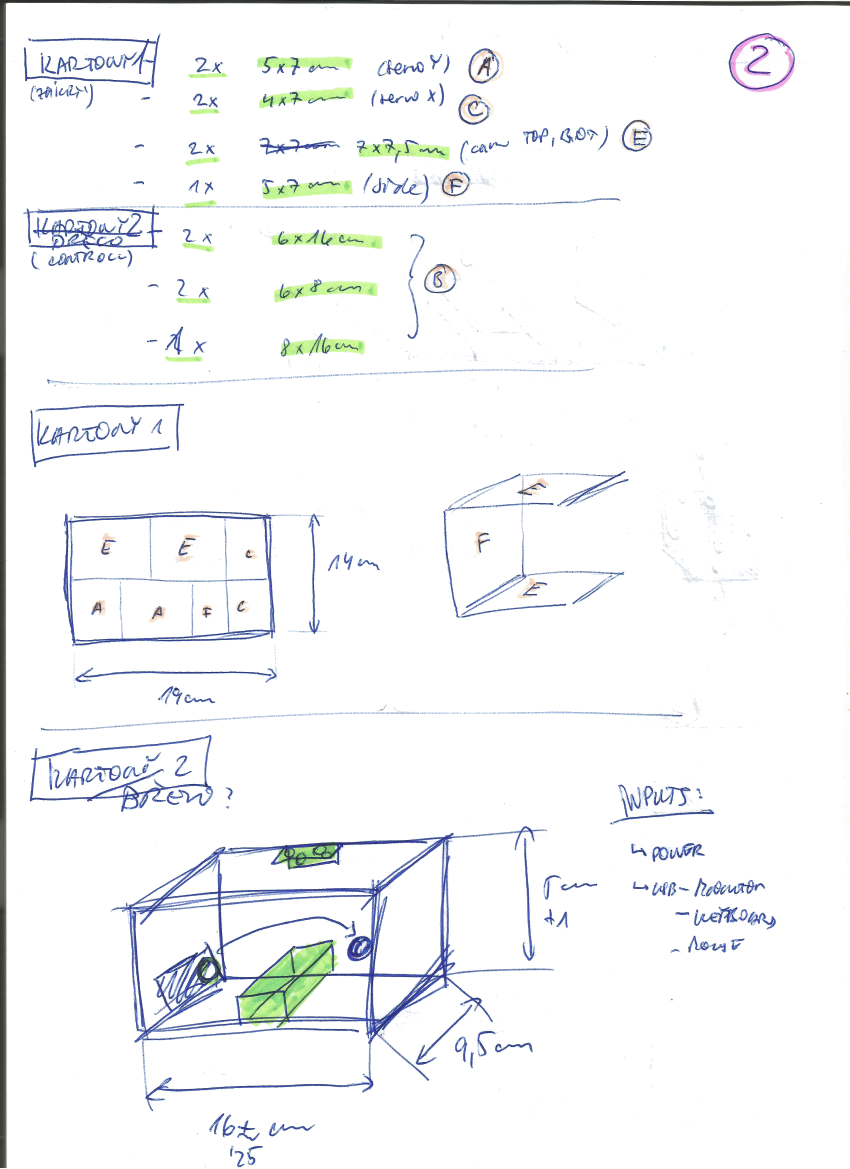 2
KARTONY 1 - 2x 5x7cm (servo Y) A
(ZAKRYT) - 2x 4x7cm (servo X) C
- 2x 7x7cm 7x7,5cm (cam TOP, BOT) E
- 1x 5x7cm (side) F
KARTONY 2 - 2x 6x16cm
DŘEVO
(CONTROLL)
- 2x 6x8cm B
- 1x 8x16cm
KARTONY 1
E E C
A A F C
14cm
19cm
E
F
E
KARTONY 2
DŘEVO?
INPUTS:
↳ POWER
↳ USB - MONITOR
- KEYBOARD
- MOUSE
5cm
+1
9,5cm
16± cm
'25